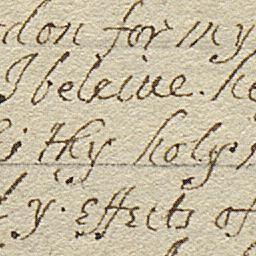 don for my
I beleiue. he
thy holy
y. effects of